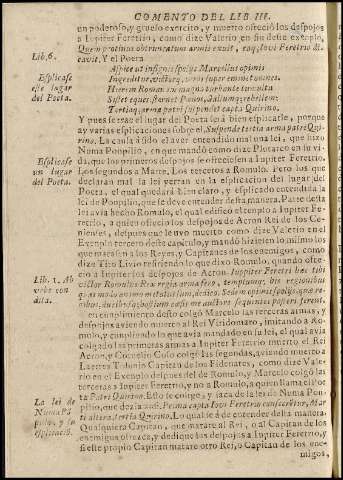 COMENTO DEL LIB III.
un poderoso, y gruelo exercito, y muerto ofreciò los despojos
a Iupiter Feretrio, como dize Valerio en su deste exemplo,
Quem protinus obtruncatum armis exuit, eaq, Iovi Feretrio di-
cavit. Y el Poeta
Lib. 6.
Aspice ut insignis spolijs Marcellus opimis
Ingreditur, victorq; viros super eminet omnes.
Hic rem Romanam magno turbante tumultu
Sistet eques, sternet Pænos, Gallumq; rebellem:
Tertiaq; arma patri suspendet capta Quirino.
Esplicase
este lugar
del Poeta.
Y pues se trae el lugar del Poeta serà bien esplicarle, porque
ay varias esplicaciones sobre el, Suspendet tertia arma patri Qui-
rino. La qual a sido el aver entendido mal una lei, que hizo
Numa Pompilio, en que mandò como dize Plutarco en su vi-
da, que los primeros despojos se ofreciesen a Iupiter Feretrio.
Los segundos a Marte. Los terceros a Romulo. Pero los que
declaran mal la lei yerran en la esplicacion del lugar del
Poeta, el qual quedarà bien claro, y esplicado entendida la
lei de Pompilio, que se deve entender desta manera. Parte desta
lei avia hecho Romulo, el qual edificò el templo a Iupiter Fe-
retrio, a quien ofreciò los despojos de Acron Rei de los Ce-
ninenses, despues que le uvo muerto como dize Valerio en el
Exemplo tercero deste capitulo, y mandò hiziesen lo mismo los
que matasen a los Reyes, y Capitanes de los enemigos, como
dize Tito Livio refiriendo lo que dixo Romulo, quando ofre-
cio a Iupiter los despojos de Acron.
Esplicase
un lugar
del Poeta.
Lib. 1. Ab
urbe con
dita.
en cumplimiento desto colgò Marcelo las terceras armas, y
despojos aviendo muerto a el Rei Viridomaro, imitando a Ro-
mulo, y cumpliendo lo que avia mandado en su lei, el qual avia
colgado las primeras armas a Iupiter Feretrio muerto el Rei
Acron, y Cornelio Coso colgò las segundas, aviendo muerto a
Laertes Tolunio Capitan de los Fidenates, como dize Vale-
rio en el Exemplo despues del de Romulo, y Marcelo colgò las
terceras a Iupiter Feretrio, y no a Romulo, a quien llama el Poe-
ta Patri Quirino. Esto se colige, y saca de la lei de Numa Pom-
pilio, que dezia ansi. Prima capta Iovi Feretrio consecrentur, Mar-
ti altera, tertia Quirino. Lo qual se à de entender desta manera.
Qualquiera Capitan, que matare al Rei, o al Capitan de los
enemigos ofrezca, y dedique los despojos a Iupiter Feretrio, y
si este propio Capitan matare otro Rei, o Capitan de los ene-
migos,
La lei de
Numa Pō
pilio, y su
esplicaciō.